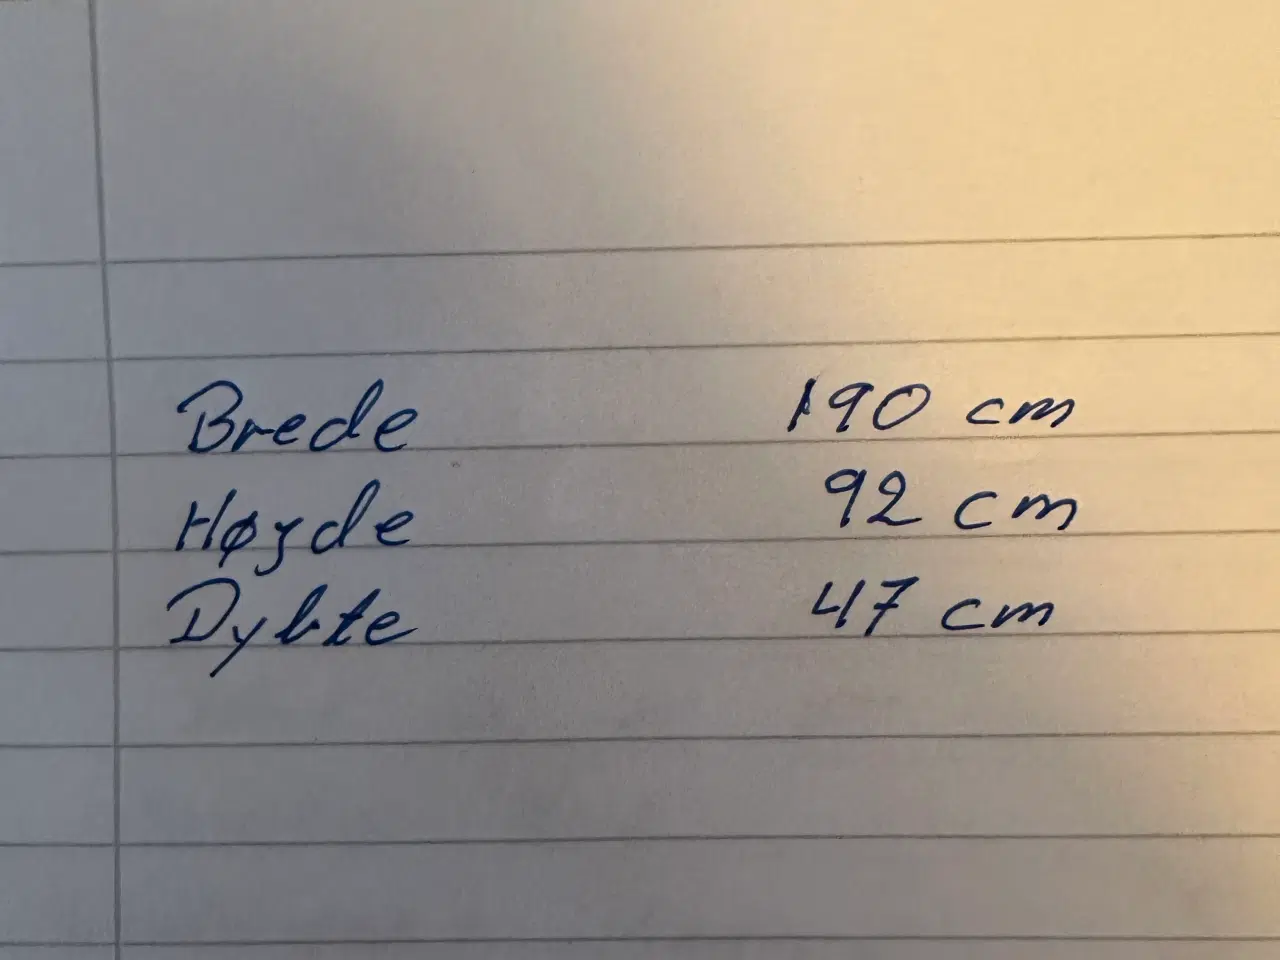 Brede 190 cm
Højde 92 cm
Dybte 47 cm